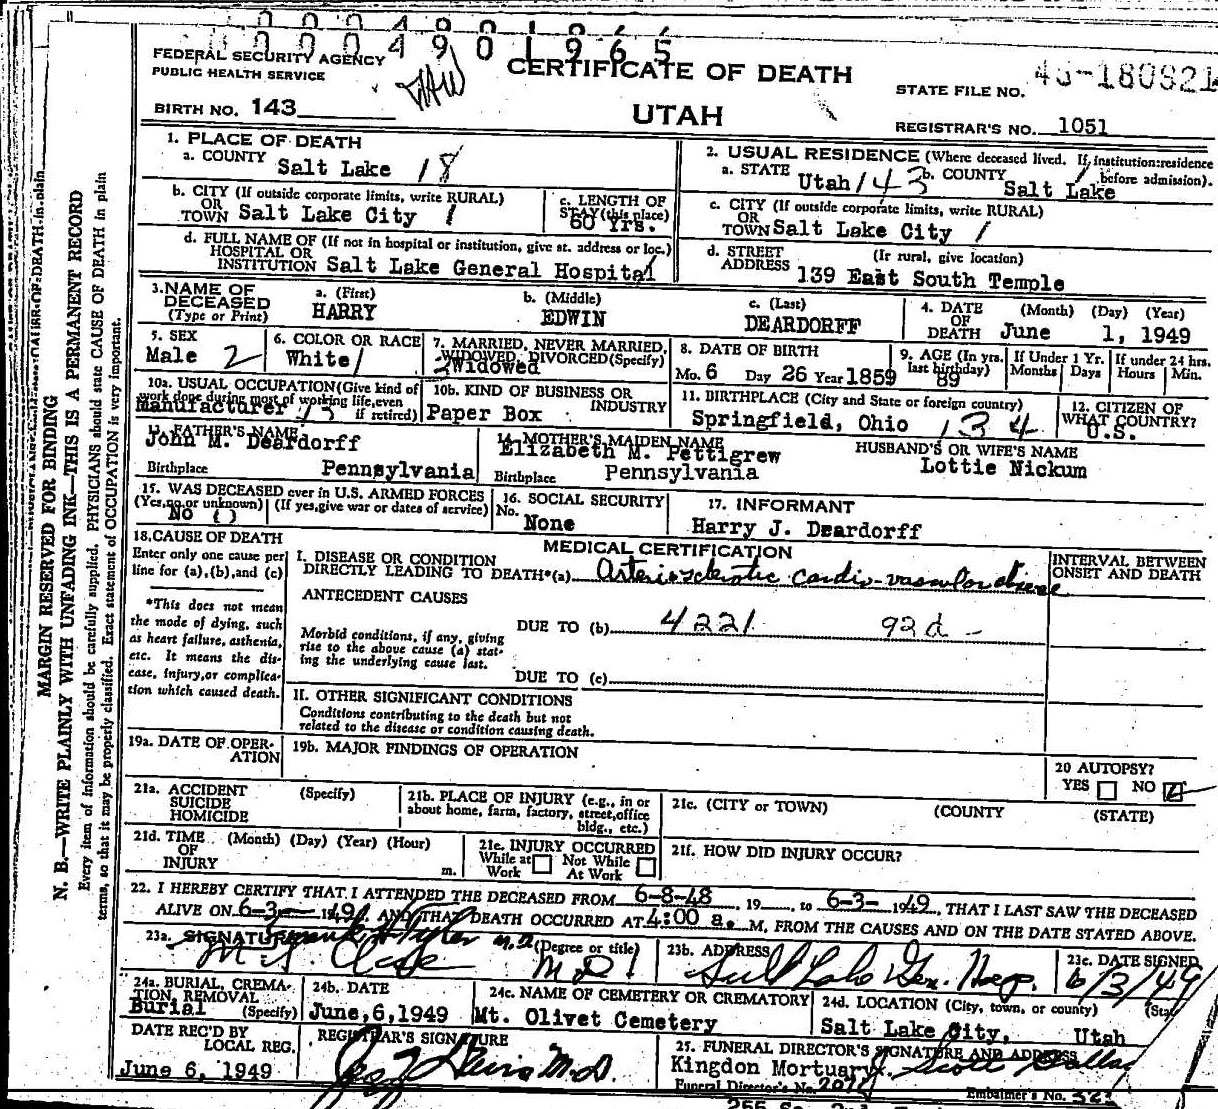 0004901965
FEDERAL SECURITY AGENCY
PUBLIC HEALTH SERVICE
CERTIFICATE OF DEATH
STATE FILE NO.
BIRTH NO. 143
UTAH
REGISTRAR'S NO. 1051
1. PLACE OF DEATH
a. COUNTY Salt Lake 18
2. USUAL RESIDENCE (Where deceased lived. If institution: residence before admission).
a. STATE Utah 143 b. COUNTY Salt Lake
b. CITY (If outside corporate limits, write RURAL) OR TOWN Salt Lake City 1
c. LENGTH OF STAY (this place) 60 Yrs.
c. CITY (If outside corporate limits, write RURAL) OR TOWN Salt Lake City 1
d. FULL NAME OF (If not in hospital or institution, give st. address or loc.) HOSPITAL OR INSTITUTION Salt Lake General Hospital
d. STREET ADDRESS (If rural, give location) 139 East South Temple
3. NAME OF DECEASED (Type or Print)
a. (First) HARRY
b. (Middle) EDWIN
c. (Last) DEARDORFF
4. DATE OF DEATH (Month) (Day) (Year) June 1, 1949
5. SEX Male 2
6. COLOR OR RACE White 1
7. MARRIED, NEVER MARRIED, WIDOWED, DIVORCED (Specify) Widowed
8. DATE OF BIRTH Mo. 6 Day 26 Year 1859
9. AGE (In yrs. last birthday) 89
If Under 1 Yr. Months Days
If under 24 hrs. Hours Min.
10a. USUAL OCCUPATION (Give kind of work done during most of working life, even if retired) Manufacturer
10b. KIND OF BUSINESS OR INDUSTRY Paper Box
11. BIRTHPLACE (City and State or foreign country) Springfield, Ohio 134
12. CITIZEN OF WHAT COUNTRY? U.S.
13. FATHER'S NAME John M. Deardorff
Birthplace Pennsylvania
14. MOTHER'S MAIDEN NAME Elizabeth M. Pettigrew
Birthplace Pennsylvania
HUSBAND'S OR WIFE'S NAME Lottie Nickum
15. WAS DECEASED ever in U.S. ARMED FORCES (Yes, no, or unknown) (If yes, give war or dates of service) No
16. SOCIAL SECURITY No. None
17. INFORMANT Harry J. Deardorff
18. CAUSE OF DEATH
Enter only one cause per line for (a), (b), and (c)
MEDICAL CERTIFICATION
INTERVAL BETWEEN ONSET AND DEATH
I. DISEASE OR CONDITION DIRECTLY LEADING TO DEATH*(a) Arteriosclerotic cardio-vascular disease
*This does not mean the mode of dying, such as heart failure, asthenia, etc. It means the disease, injury, or complication which caused death.
ANTECEDENT CAUSES
Morbid conditions, if any, giving rise to the above cause (a) stating the underlying cause last.
DUE TO (b) 4221 92d -
DUE TO (c)
II. OTHER SIGNIFICANT CONDITIONS
Conditions contributing to the death but not related to the disease or condition causing death.
19a. DATE OF OPERATION
19b. MAJOR FINDINGS OF OPERATION
20 AUTOPSY?
YES NO
21a. ACCIDENT SUICIDE HOMICIDE (Specify)
21b. PLACE OF INJURY (e.g., in or about home, farm, factory, street, office bldg., etc.)
21c. (CITY or TOWN) (COUNTY) (STATE)
21d. TIME OF INJURY (Month) (Day) (Year) (Hour) m.
21e. INJURY OCCURRED While at Work Not While At Work
21f. HOW DID INJURY OCCUR?
22. I HEREBY CERTIFY THAT I ATTENDED THE DECEASED FROM 6-8-48, 19__, to 6-3- 1949, THAT I LAST SAW THE DECEASED
ALIVE ON 6-3- 1949. AND THAT DEATH OCCURRED AT 4:00 a. M, FROM THE CAUSES AND ON THE DATE STATED ABOVE.
23a. SIGNATURE (Degree or title) M.D.
23b. ADDRESS Salt Lake Gen. Hosp.
23c. DATE SIGNED 6/3/49
24a. BURIAL, CREMATION, REMOVAL (Specify) Burial
24b. DATE June, 6, 1949
24c. NAME OF CEMETERY OR CREMATORY Mt. Olivet Cemetery
24d. LOCATION (City, town, or county) (State) Salt Lake City, Utah
DATE REC'D BY LOCAL REG. June 6, 1949
REGISTRAR'S SIGNATURE M.D.
25. FUNERAL DIRECTOR'S SIGNATURE AND ADDRESS
Kingdon Mortuary
Funeral Director's No.
Embalmer's No.
MARGIN RESERVED FOR BINDING
N. B.—WRITE PLAINLY WITH UNFADING INK—THIS IS A PERMANENT RECORD
Every item of information should be carefully supplied. PHYSICIANS should state CAUSE OF DEATH in plain
terms, so that it may be properly classified. Exact statement of OCCUPATION is very important.